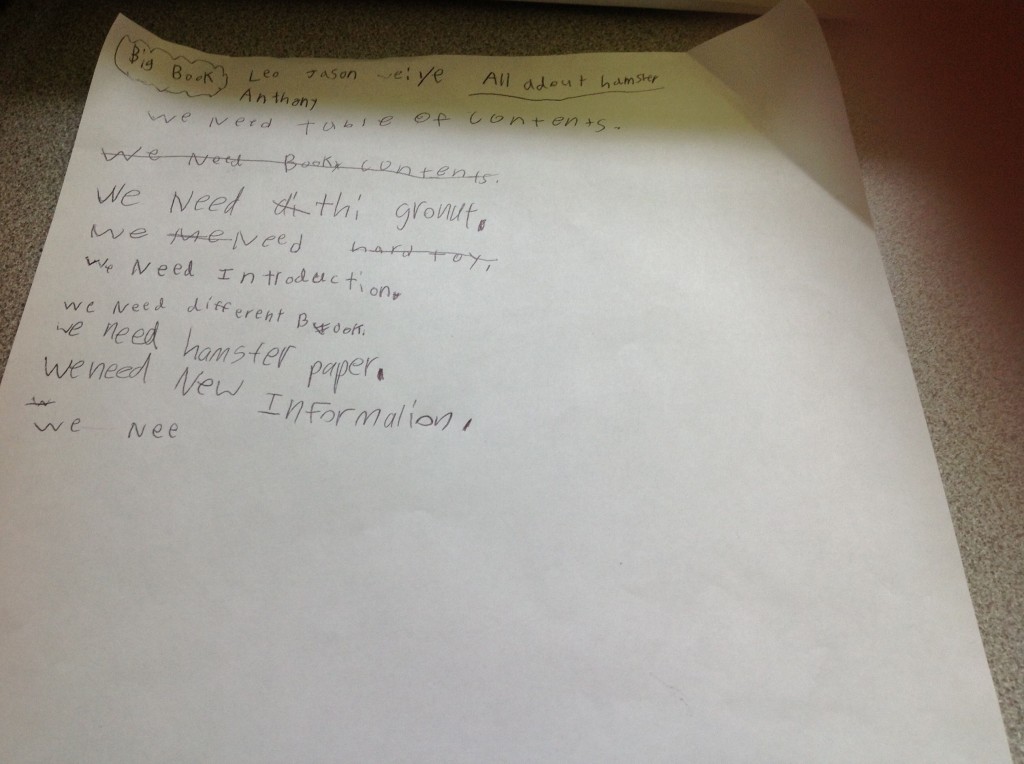 Big Book Leo Jason weiye All adout hamster
Anthony
We Need table of contents.
We Need Book contents.
We Need thi gronut.
We me Need hard toy.
We Need Introduction.
We Need different Book.
we need hamster paper.
we need New Information.
w
We Nee